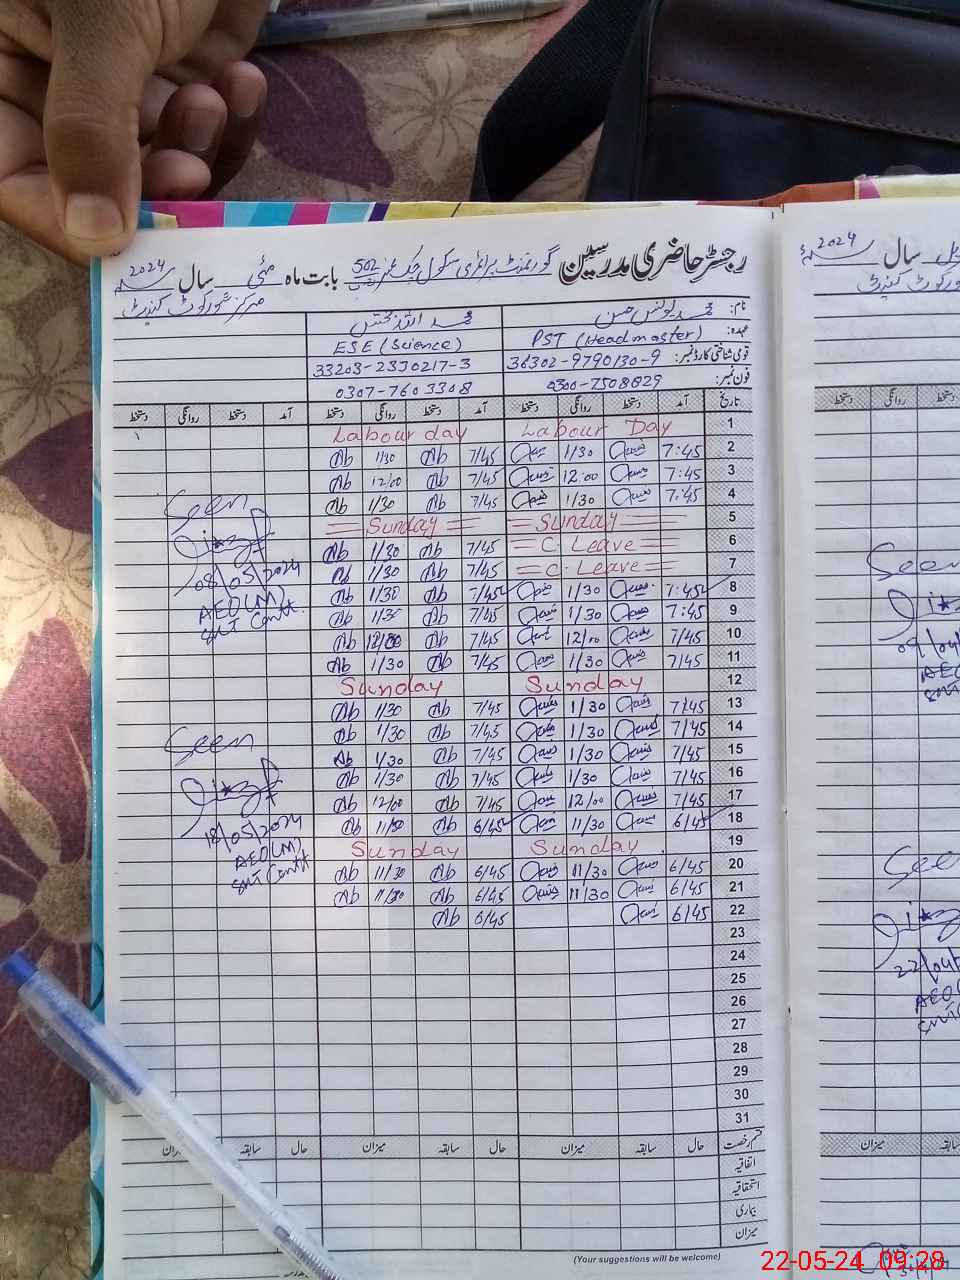 رجسٹر حاضری مدرسین گورنمنٹ پرائمری سکول چک نمبر 502 بابت ماہ مئی سال 2024
مرکز شورکوٹ کینٹ
نام: محمد یونس حسن محمد اللہ بخش
عہدہ: PST (Headmaster) ESE (Science)
قومی شناختی کارڈ نمبر: 36302-9790130-9 33203-2330217-3
فون نمبر: 0300-7508829 0307-7603308
تاریخ آمد دستخط روانگی دستخط آمد دستخط روانگی دستخط آمد دستخط روانگی دستخط
1 Labour Day Labour day
2 7:45 1/30 7/45 Ab 1/30 Ab
3 7:45 12:00 7/45 Ab 12/00 Ab
4 7:45 1/30 7/45 Ab 1/30 Ab
5 Sunday Sunday
6 C. Leave 7/45 Ab 1/30 Ab
7 C. Leave 7/45 Ab 1/30 Ab
8 7:45 1/30 7/45 Ab 1/30 Ab
9 7:45 1/30 7/45 Ab 1/30 Ab
10 7/45 12/00 7/45 Ab 12/00 Ab
11 7/45 1/30 7/45 Ab 1/30 Ab
12 Sunday Sunday
13 7/45 1/30 7/45 Ab 1/30 Ab
14 7/45 1/30 7/45 Ab 1/30 Ab
15 7/45 1/30 7/45 Ab 1/30 Ab
16 7/45 1/30 7/45 Ab 1/30 Ab
17 7/45 12/00 7/45 Ab 12/00 Ab
18 6/45 11/30 6/45 Ab 11/30 Ab
19 Sunday Sunday
20 6/45 11/30 6/45 Ab 11/30 Ab
21 6/45 11/30 6/45 Ab 11/30 Ab
22 6/45 6/45 Ab
23
24
25
26
27
28
29
30
31
Seen
08/05/2024
AEO(M)
Seen
18/05/2024
AEO(M)
قسم رخصت حال سابقہ میزان حال سابقہ میزان حال سابقہ میزان
اتفاقیہ
استحقاقیہ
بیماری
میزان
(Your suggestions will be welcome)
سال 2024
دستخط روانگی دستخط
Seen
09/04
Seen
22/04
AEO
میزان
22-05-24 09:28